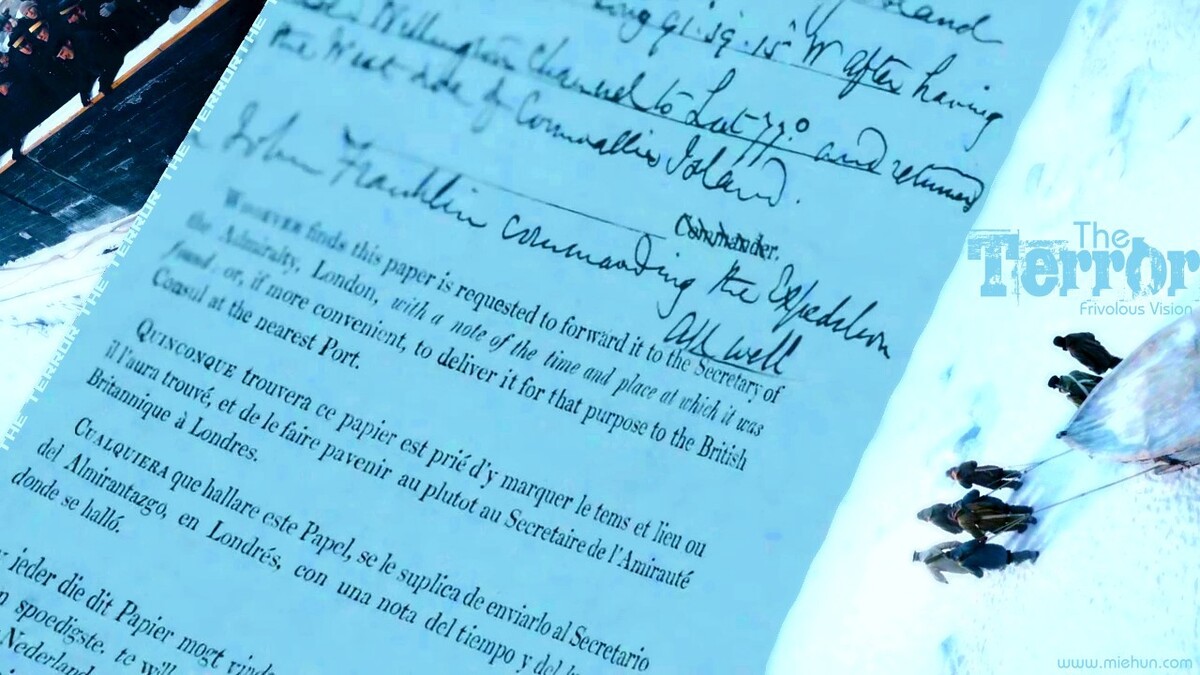 Island
Long 91.39.15 W after having
Wellington Channel to Lat 77° and returned
the West side of Cornwallis Island.
Commander.
John Franklin commanding the Expedition
All well
WHOEVER finds this paper is requested to forward it to the Secretary of
the Admiralty, London, with a note of the time and place at which it was
found: or, if more convenient, to deliver it for that purpose to the British
Consul at the nearest Port.
QUINCONQUE trouvera ce papier est prié d'y marquer le tems et lieu ou
il l'aura trouvé, et de le faire pavenir au plutot au Secretaire de l'Amirauté
Britannique à Londres.
CUALQUIERA que hallare este Papel, se le suplica de enviarlo al Secretario
del Almirantazgo, en Londrés, con una nota del tiempo y del
donde se halló.
ieder die dit Papier mogt
spoedigste, te
Nederland
THE TERROR THE TERROR THE TERROR THE TERROR
The
Terror
Frivolous Vision
www.miehun.com